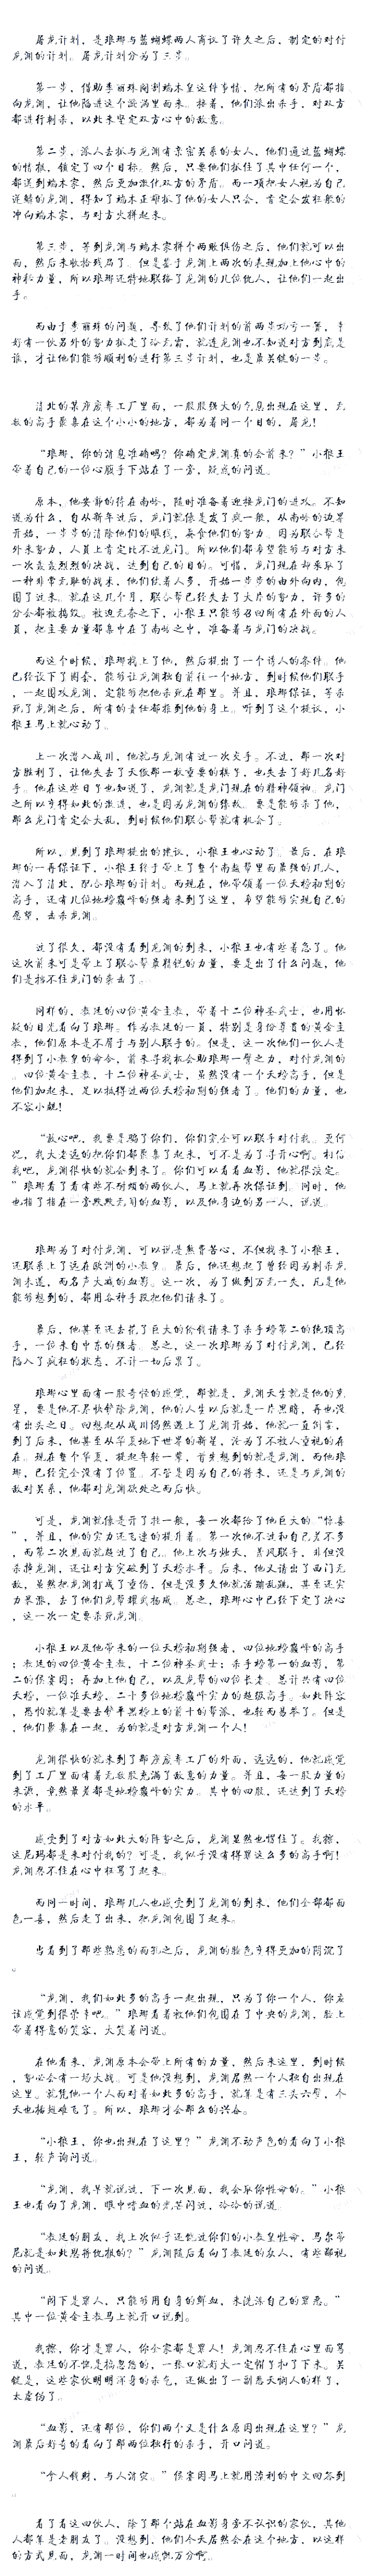 屠龙计划，是琅琊与蓝蝴蝶两人商议了许久之后，制定的对付
龙渊的计划。屠龙计划分为了三步。
第一步，借助李丽珠阉割端木皇这件事情，把所有的矛盾都指
向龙渊，让他陷进这个漩涡里面来。接着，他们派出杀手，对双方
都进行刺杀，以此来坚定双方心中的敌意。
第二步，派人去抓与龙渊有亲密关系的女人，他们通过蓝蝴蝶
的情报，锁定了四个目标。然后，只要他们抓住了其中任何一个，
都送到端木家，然后更加激化双方的矛盾。而一项把女人视为自己
逆鳞的龙渊，得知了端木正那抓了他的女人只会，肯定会发狂般的
冲向端木家，与对方火拼起来。
第三步，等到龙渊与端木家拼个两败俱伤之后，他们就可以出
面，然后来收拾残局了。但是鉴于龙渊上两次的表现加上他心中的
神秘力量，所以琅琊还特地联络了龙渊的几位仇人，让他们一起出
手。
而由于李丽珠的问题，导致了他们计划的前两步功亏一篑，幸
好有一伙另外的势力抓走了洛无霜，就连龙渊也不知道对方到底是
谁，才让他们能够顺利的进行第三步计划，也是最关键的一步。
清北的某座废弃工厂里面，一股股强大的气息出现在这里，无
数的高手聚集在这个小小的地方，都为着同一个目的，屠龙！
“琅琊，你的消息准确吗？你确定龙渊真的会前来？”小狼王
带着自己的一位心腹手下站在了一旁，疑惑的问道。
原本，他安静的待在南岭，随时准备着迎接龙门的进攻。不知
道为什么，自从新年过后，龙门就像是发了疯一般，从南岭的边界
开始，一步步的清除他们的眼线，蚕食他们的势力。因为联合帮是
外来势力，人员上肯定比不过龙门。所以他们都希望能够与对方来
一次轰轰烈烈的决战，达到自己的目的。可惜，龙门现在却采取了
一种非常无耻的战术，他们仗着人多，开始一步步的由外向内，包
围了过来。就在这几个月，联合帮已经失去了大片的势力，许多的
分会都被捣毁。被迫无奈之下，小狼王只能够召回所有在外面的人
员，把主要力量都集中在了南岭之中，准备着与龙门的决战。
而这个时候，琅琊找上了他，然后提出了一个诱人的条件。他
已经设下了圈套，能够让龙渊独自前往一个地方，到时候他们联手
，一起围攻龙渊，定能够把他杀死在那里。并且，琅琊保证，等杀
死了龙渊之后，所有的责任都推到他的身上。听到了这个提议，小
狼王马上就心动了。
上一次潜入成川，他就与龙渊有过一次交手。不过，那一次对
方胜利了，让他失去了天傲那一枚重要的棋子，也失去了好几名好
手。他在这些日子也知道了，龙渊就是龙门现在的精神领袖。龙门
之所以变得如此的激进，也是因为龙渊的缘故。要是能够杀了他，
那么龙门肯定会大乱，到时候他们联合帮就有机会了。
所以，见到了琅琊提出的建议，小狼王也心动了。最后，在琅
琊的一再保证下，小狼王终于带上了整个南越帮里面最强的几人，
潜入了清北，配合琅琊的计划。而现在，他带领着一位天榜初期的
高手，还有几位地榜巅峰的强者来到了这里，希望能够实现自己的
愿望，击杀龙渊。
过了很久，都没有看到龙渊的到来，小狼王也有些着急了。他
这次前来可是带上了联合帮最精锐的力量，要是出了什么问题，他
们是挡不住龙门的袭击了。
同样的，教廷的四位黄金主教，带着十二位神圣武士，也用怀
疑的目光看向了琅琊。作为教廷的一员，特别是身份尊贵的黄金主
教，他们原本是不屑于与别人联手的。但是，这一次他们一伙人是
得到了小教皇的命令，前来寻找机会助琅琊一臂之力，对付龙渊的
。四位黄金主教，十二位神圣武士，虽然没有一个天榜高手，但是
他们加起来，足以抵得过两位天榜初期的强者了。他们的力量，也
不容小觑！
“放心吧，我要是骗了你们，你们完全可以联手对付我。更何
况，我大老远的把你们都聚集了起来，可不是为了寻开心啊。相信
我吧，龙渊很快的就会到来了。你们可以看看血影，他就很淡定。
”琅琊看了看有些不耐烦的两伙人，马上就再次保证到。同时，他
也指了指在一旁默默无闻的血影，以及他身边的另一人，说道。
琅琊为了对付龙渊，可以说是煞费苦心，不但找来了小狼王，
还联系上了远在欧洲的小教皇。最后，他还想起了曾经因为刺杀龙
渊未遂，而名声大减的血影。这一次，为了做到万无一失，凡是他
能够想到的，都用各种手段把他们请来了。
最后，他甚至还去花了巨大的价钱请来了杀手榜第二的绝顶高
手，一位来自中东的强者。总之，这一次琅琊为了对付龙渊，已经
陷入了疯狂的状态，不计一切后果了。
琅琊心里面有一股奇怪的感觉，那就是，龙渊天生就是他的克
星，要是他不尽快铲除龙渊，他的人生以后就是一片黑暗，再也没
有出头之日。回想起从成川偶然遇上了龙渊开始，他就一直倒霉，
到了后来，他甚至从华夏地下世界的新星，沦为了不被人重视的存
在。现在整个华夏，提起年轻一辈，首先想到的就是龙渊，而他琅
琊，已经完全没有了位置。不管是因为自己的将来，还是与龙渊的
敌对关系，他都对龙渊欲处之而后快。
可是，龙渊就像是开了挂一般，每一次都给了他巨大的“惊喜
”，并且，他的实力还飞速的提升着。第一次他不过和自己差不多
，而第二次见面就超过了自己。他上次与灿天、暮风联手，非但没
杀掉龙渊，还让对方突破到了天榜水平。后来，他又请出了西门无
敌，虽然把龙渊打成了重伤，但是没多久他就活蹦乱跳，甚至还实
力暴涨，去了他们龙帮耀武扬威。总之，琅琊心中已经下定了决心
，这一次一定要杀死龙渊。
小狼王以及他带来的一位天榜初期强者，四位地榜巅峰的高手
；教廷的四位黄金主教，十二位神圣武士；杀手榜第一的血影，第
二的侯赛因；再加上他自己，以及龙帮的四位长老。总计共有四位
天榜，一位准天榜，二十多位地榜巅峰实力的超级高手。如此阵容
，恐怕就算是要去铲平黑榜上的前十的帮派，也轻而易举了。但是
，他们聚集在一起，为的就是对方龙渊一个人！
龙渊很快的就来到了那座废弃工厂的外面，远远的，他就感觉
到了工厂里面有着无数股充满了敌意的力量。并且，每一股力量的
来源，竟然最差都是地榜巅峰的实力。其中的四股，还达到了天榜
的水平。
感受到了对方如此大的阵势之后，龙渊显然也愣住了。我擦，
这尼玛都是来对付我的？可是，我似乎没有得罪这么多的高手啊！
龙渊忍不住在心中狂骂了起来。
而同一时间，琅琊几人也感受到了龙渊的到来，他们全部都面
色一喜，然后走了出来，把龙渊包围了起来。
当看到了那些熟悉的面孔之后，龙渊的脸色变得更加的阴沉了
。
“龙渊，我们如此多的高手一起出现，只为了你一个人，你应
该感觉到很荣幸吧。”琅琊看着被他们包围在了中央的龙渊，脸上
带着得意的笑容，大笑着问道。
在他看来，龙渊原本会带上所有的力量，然后来这里，到时候
，势必会有一场大战。可是他没想到，龙渊居然一个人独自出现在
这里。就凭他一个人面对着如此多的高手，就算是有三头六臂，今
天也插翅难飞了。所以，琅琊才会那么的兴奋。
“小狼王，你也出现在了这里？”龙渊不动声色的看向了小狼
王，轻声询问道。
“龙渊，我早就说过，下一次见面，我会取你性命的。”小狼
王也看向了龙渊，眼中嗜血的光芒闪过，冷冷的说道。
“教廷的朋友，我上次似乎还饶过你们的小教皇性命，马尔蒂
尼就是如此恩将仇报的？”龙渊随后看向了教廷的众人，有些鄙视
的问道。
“阁下是罪人，只能够用自身的鲜血，来洗涤自己的罪恶。”
其中一位黄金主教马上就开口说到。
我擦，你才是罪人，你全家都是罪人！龙渊忍不住在心里面骂
道，教廷的不愧是搞忽悠的，一张口就好大一定帽子扣了下来。关
键是，这些家伙明明浑身的杀气，还做出了一副悲天悯人的样子，
太虚伪了。
“血影，还有那位，你们两个又是什么原因出现在这里？”龙
渊最后好奇的看向了那两位独行的杀手，开口问道。
“拿人钱财，与人消灾。”侯赛因马上就用流利的中文回答到
。
看了看这四伙人，除了那个站在血影身旁不认识的家伙，其他
人都算是老朋友了。没想到，他们今天居然会在这个地方，以这样
的方式见面，龙渊一时间也感慨万分啊。